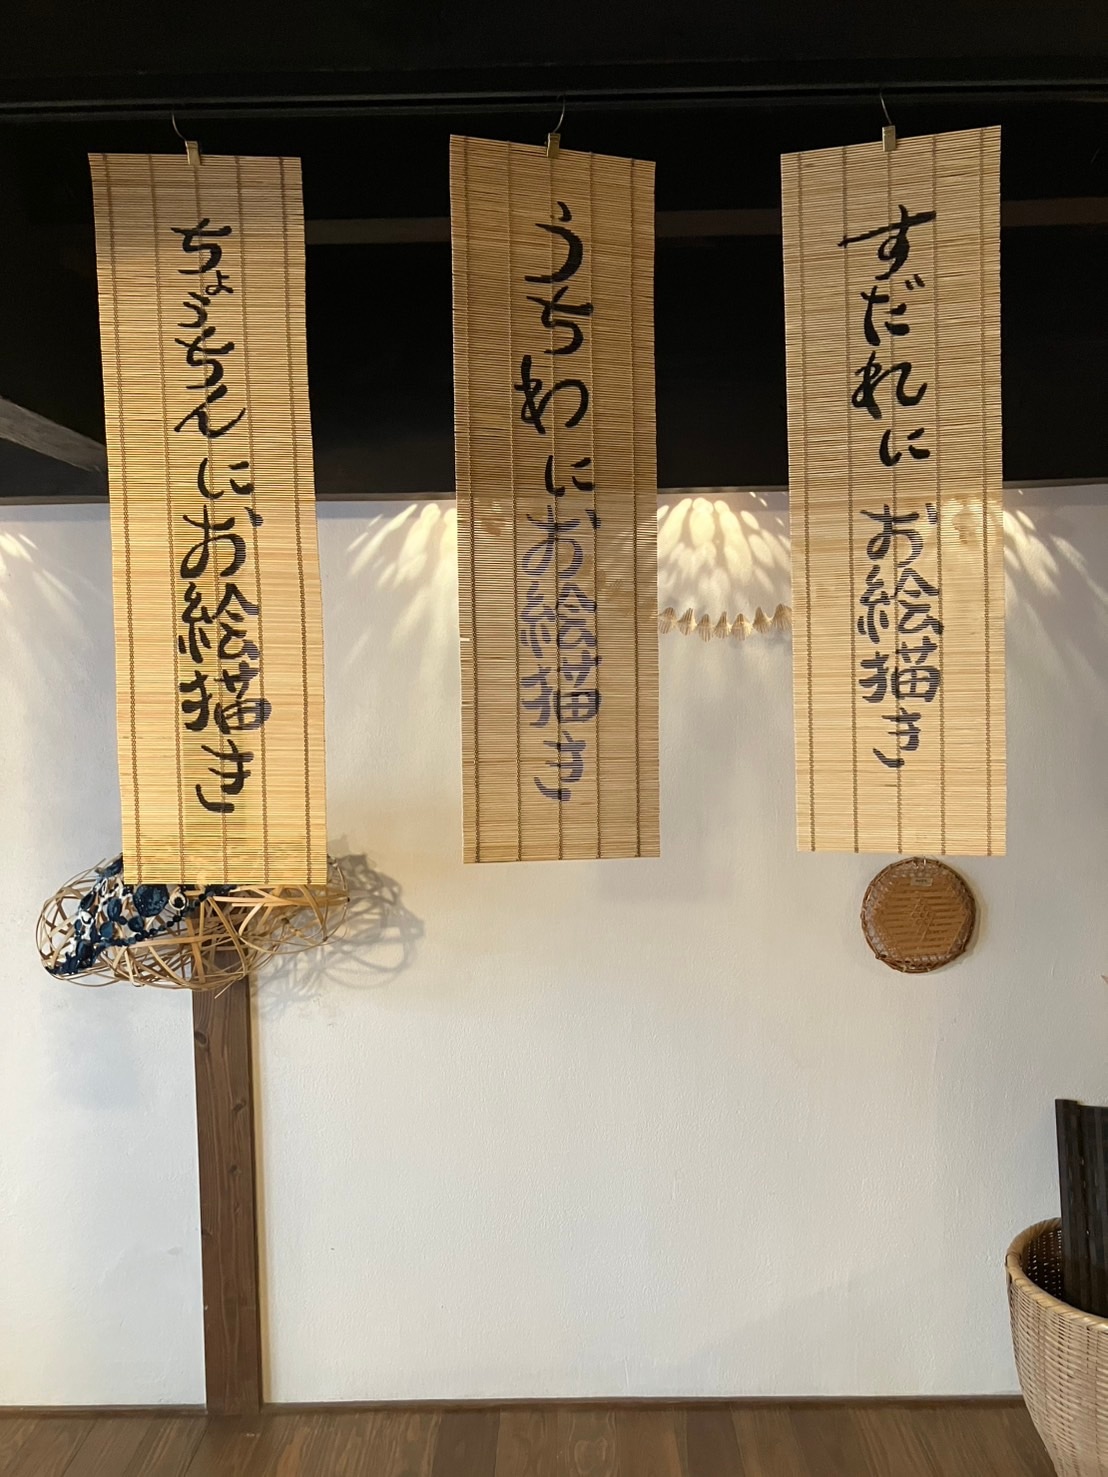 すだれにお絵描き
うちわにお絵描き
ちょうちんにお絵描き